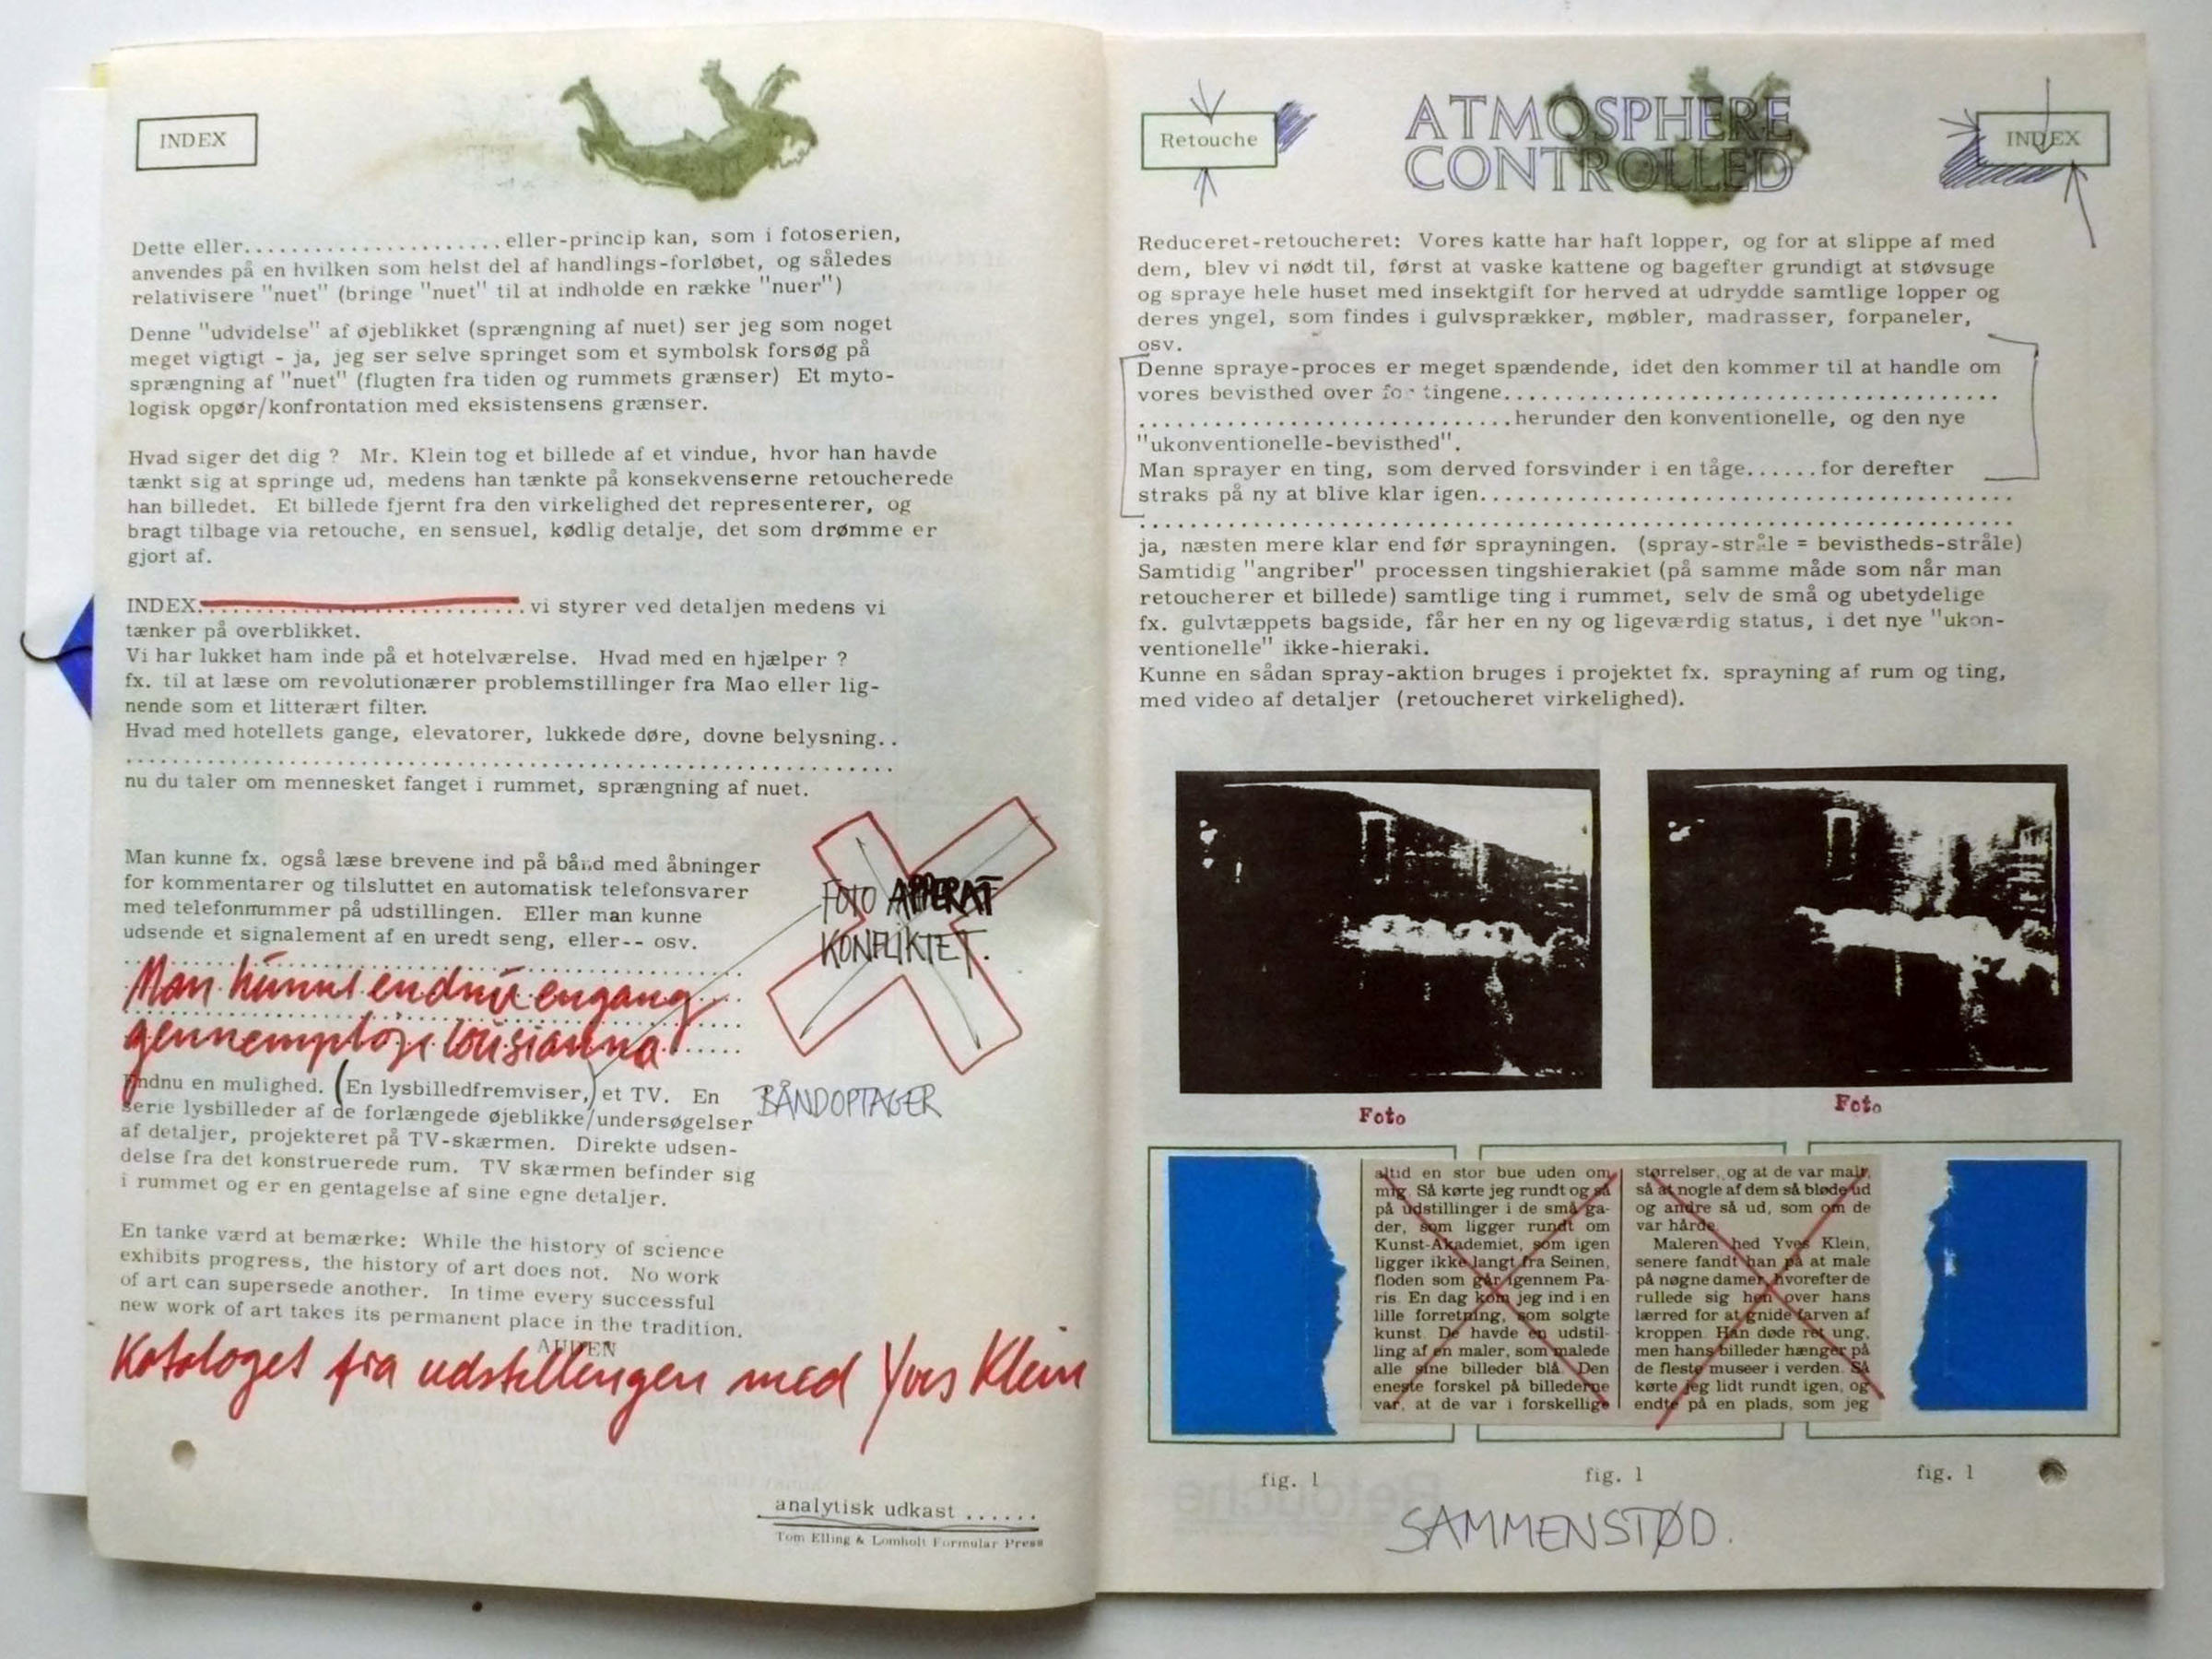 INDEX
Dette eller......................eller-princip kan, som i fotoserien,
anvendes på en hvilken som helst del af handlings-forløbet, og således
relativisere "nuet" (bringe "nuet" til at indholde en række "nuer")
Denne "udvidelse" af øjeblikket (sprængning af nuet) ser jeg som noget
meget vigtigt - ja, jeg ser selve springet som et symbolsk forsøg på
sprængning af "nuet" (flugten fra tiden og rummets grænser) Et myto-
logisk opgør/konfrontation med eksistensens grænser.
Hvad siger det dig ? Mr. Klein tog et billede af et vindue, hvor han havde
tænkt sig at springe ud, medens han tænkte på konsekvenserne retoucherede
han billedet. Et billede fjernt fra den virkelighed det representerer, og
bragt tilbage via retouche, en sensuel, kødlig detalje, det som drømme er
gjort af.
INDEX............................vi styrer ved detaljen medens vi
tænker på overblikket.
Vi har lukket ham inde på et hotelværelse. Hvad med en hjælper ?
fx. til at læse om revolutionærer problemstillinger fra Mao eller lig-
nende som et litterært filter.
Hvad med hotellets gange, elevatorer, lukkede døre, dovne belysning..
nu du taler om mennesket fanget i rummet, sprængning af nuet.
Man kunne fx. også læse brevene ind på bånd med åbninger
for kommentarer og tilsluttet en automatisk telefonsvarer
med telefonnummer på udstillingen. Eller man kunne
udsende et signalement af en uredt seng, eller-- osv.
FOTO APPERAT
KONFLIKTET.
Man kunne endnu engang
gennempløje lousianna
Endnu en mulighed. (En lysbilledfremviser,) et TV. En
serie lysbilleder af de forlængede øjeblikke/undersøgelser
af detaljer, projekteret på TV-skærmen. Direkte udsen-
delse fra det konstruerede rum. TV skærmen befinder sig
i rummet og er en gentagelse af sine egne detaljer.
BÅNDOPTAGER
En tanke værd at bemærke: While the history of science
exhibits progress, the history of art does not. No work
of art can supersede another. In time every successful
new work of art takes its permanent place in the tradition.
AUDEN
Kataloget fra udstillingen med Yves Klein
analytisk udkast ......
Tom Elling & Lomholt Formular Press
Retouche
ATMOSPHERE
CONTROLLED
INDEX
Reduceret-retoucheret: Vores katte har haft lopper, og for at slippe af med
dem, blev vi nødt til, først at vaske kattene og bagefter grundigt at støvsuge
og spraye hele huset med insektgift for herved at udrydde samtlige lopper og
deres yngel, som findes i gulvsprækker, møbler, madrasser, forpaneler,
osv.
Denne spraye-proces er meget spændende, idet den kommer til at handle om
vores bevisthed over for tingene..........................................
................................herunder den konventionelle, og den nye
"ukonventionelle-bevisthed".
Man sprayer en ting, som derved forsvinder i en tåge......for derefter
straks på ny at blive klar igen..............................................
ja, næsten mere klar end før sprayningen. (spray-stråle = bevistheds-stråle)
Samtidig "angriber" processen tingshierakiet (på samme måde som når man
retoucherer et billede) samtlige ting i rummet, selv de små og ubetydelige
fx. gulvtæppets bagside, får her en ny og ligeværdig status, i det nye "ukon-
ventionelle" ikke-hieraki.
Kunne en sådan spray-aktion bruges i projektet fx. sprayning af rum og ting,
med video af detaljer (retoucheret virkelighed).
Foto
Foto
altid en stor bue uden om
mig. Så kørte jeg rundt og så
på udstillinger i de små ga-
der, som ligger rundt om
Kunst-Akademiet, som igen
ligger ikke langt fra Seinen,
floden som går igennem Pa-
ris. En dag kom jeg ind i en
lille forretning, som solgte
kunst. De havde en udstil-
ling af en maler, som malede
alle sine billeder blå. Den
eneste forskel på billederne
var, at de var i forskellige
størrelser, og at de var malt,
så at nogle af dem så bløde ud
og andre så ud, som om de
var hårde.
Maleren hed Yves Klein,
senere fandt han på at male
på nøgne damer, hvorefter de
rullede sig hen over hans
lærred for at gnide farven af
kroppen. Han døde ret ung,
men hans billeder hænger på
de fleste museer i verden. Så
kørte jeg lidt rundt igen, og
endte på en plads, som jeg
fig. 1
fig. 1
fig. 1
SAMMENSTØD.
Retouche